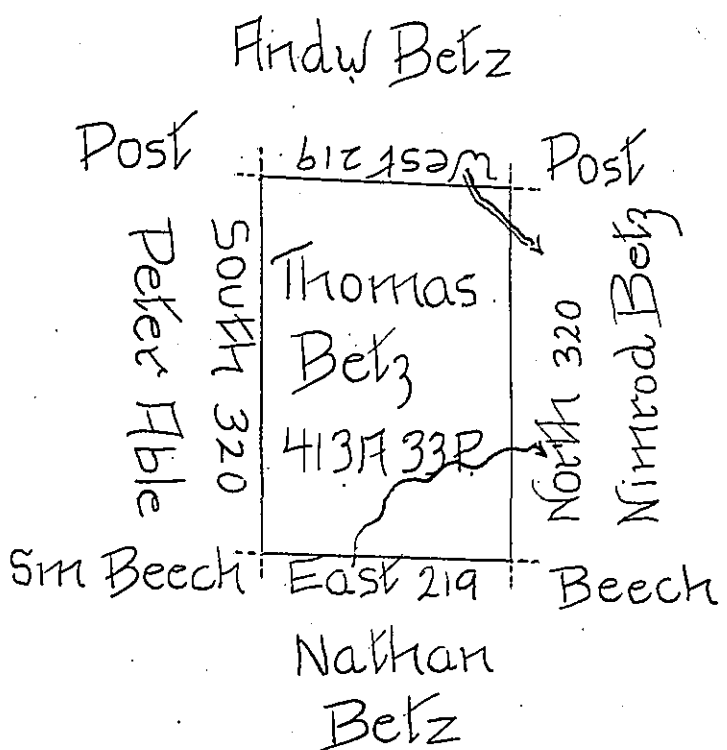 Andw Betz
Post
West 219
Post
Peter Able
South 320
Thomas
Betz
413A 33P
North 320
Nimrod Betz
Sm Beech
East 219
Beech
Nathan
Betz